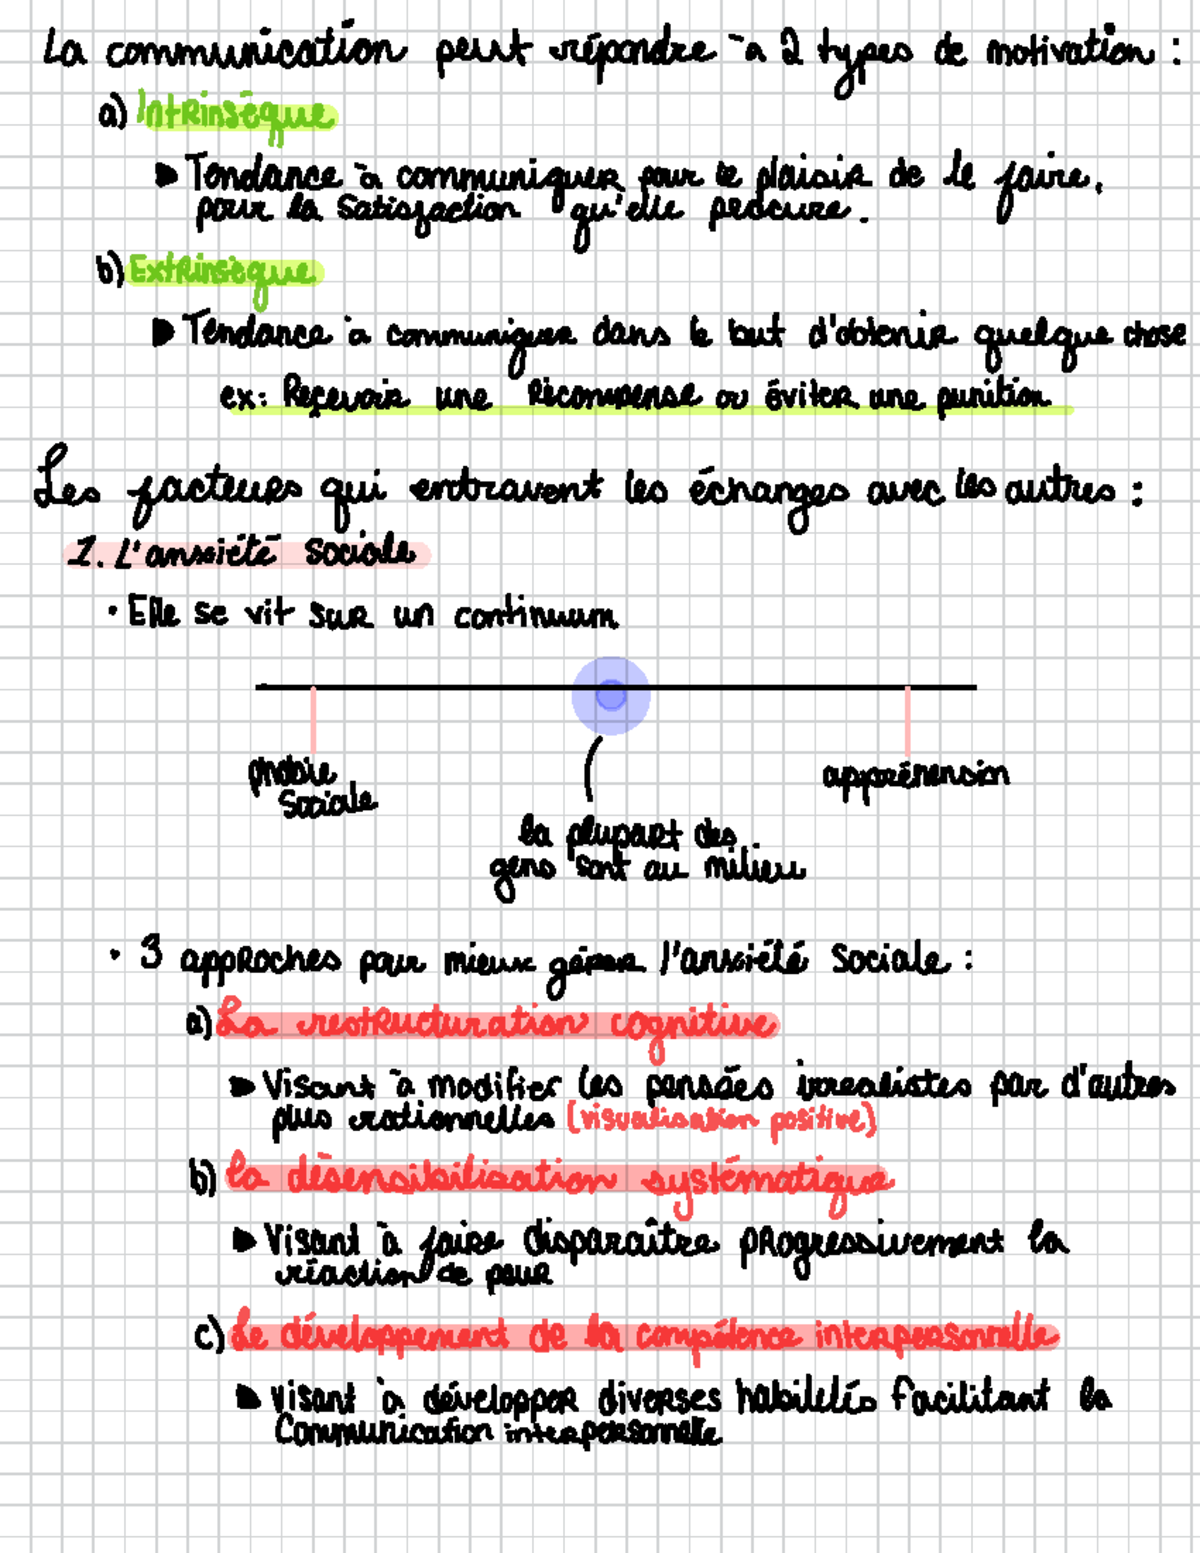 La communication peut répondre à 2 types de motivation :
a) Intrinsèque
Tendance à communiquer pour le plaisir de le faire,
pour la satisfaction qu'elle procure.
b) Extrinsèque
Tendance à communiquer dans le but d'obtenir quelque chose
ex: Reçevoir une récompense ou éviter une punition
Les facteurs qui entravent les échanges avec les autres :
1. L'anxiété sociale
• Elle se vit sur un continuum
phobie
sociale
appréhension
la plupart des
gens sont au milieu
• 3 approches pour mieux gérer l'anxiété sociale :
a) La restructuration cognitive
Visant à modifier les pensées irréalistes par d'autres
plus rationnelles (visualisation positive)
b) la désensibilisation systématique
Visant à faire disparaître progressivement la
réaction de peur
c) Le développement de la compétence interpersonnelle
Visant à développer diverses habiletés facilitant la
communication interpersonnelle